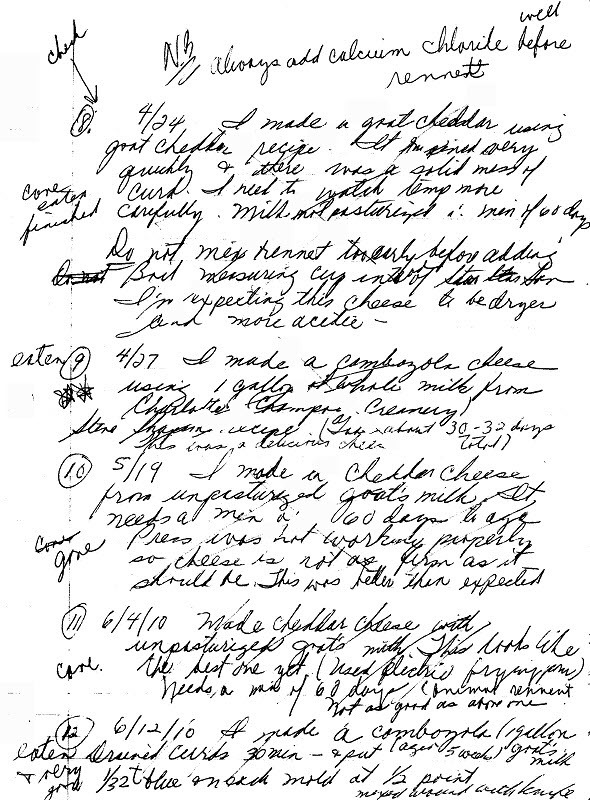 check
well
NB // Always add calcium chlorile before
rennett
8. 4/24 I made a goat cheddar using
goat cheddar recipe. It ripened very
quickly & there was a solid mass of
curd. I need to watch temp more
carefully. Milk not pasturized i. min of 60 days
cave
eaten
finished
Do not mix rennet too early before adding
Do not
measuring cup into
I'm expecting this cheese to be dryer
and more acetic –
eaten 9 4/27 I made a combozola cheese
using 1 gallon of whole milk from
Creamery)
Steve recipe. (Tak about 30-32 days
total)
This was a delicious cheese
10 5/19 I made a cheddar cheese
from unpasturized goat's milk. It
needs a min of 60 days to age
cave
gone
Press was not working properly
so cheese is not as firm as it
should be. This was better then expected
11 6/4/10 Made cheddar cheese with
unpasturized goat's milk. This looks like
cave. the best one yet (Used electric frying pan)
Needs a min of 60 days (animal rennent
Not as good as above one
12 6/12/10 I made a combozola (1 gallon
goat's
milk
eaten Drained curds 30 min – & put (age 5 weeks)
& very
good 1/32 t blue on each mold at 1/2 point
mixed around with knife